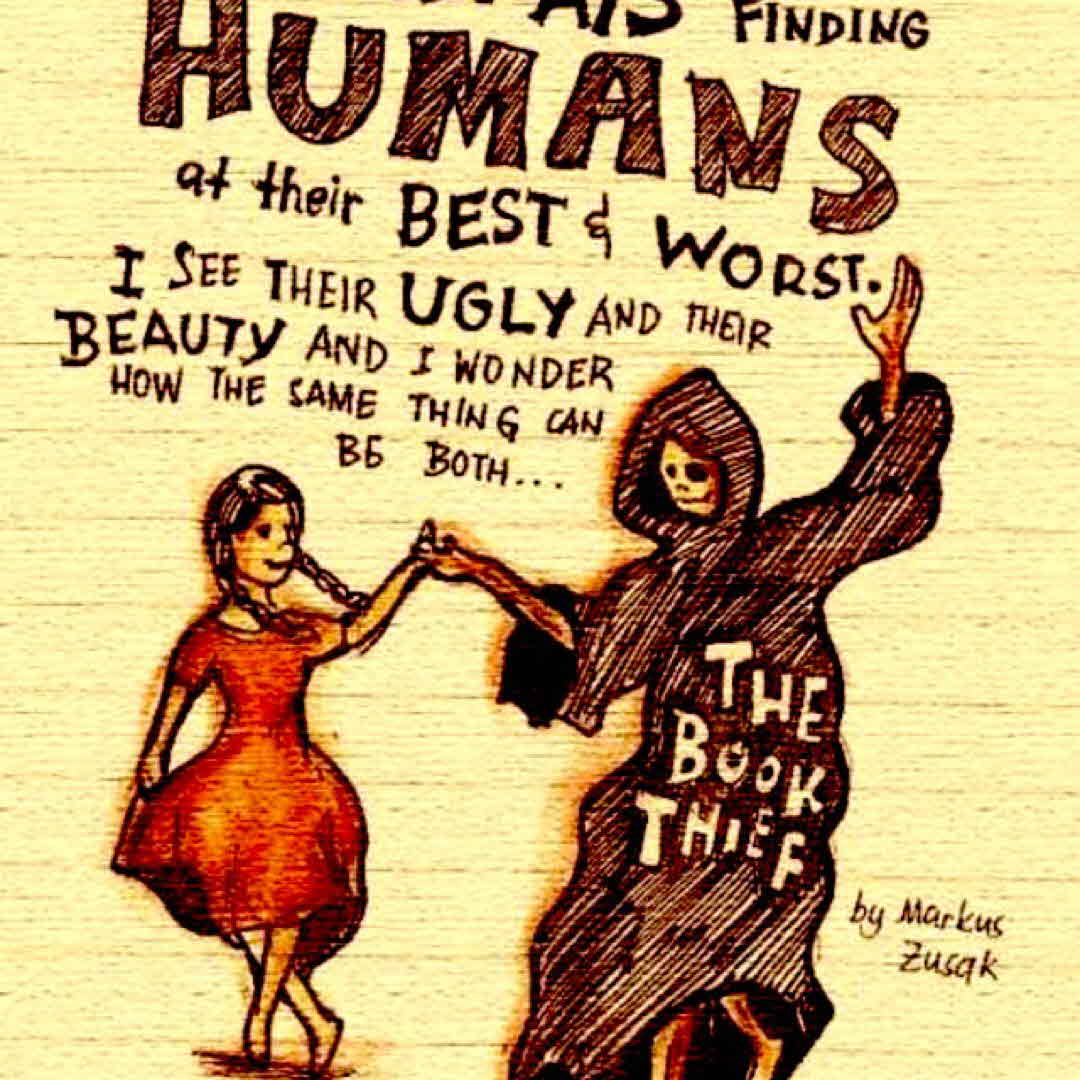 FINDING
HUMANS
at their BEST & WORST.
I SEE THEIR UGLY AND THEIR
BEAUTY AND I WONDER
HOW THE SAME THING CAN
BE BOTH...
THE
BOOK
THIEF
by Markus
Zusak